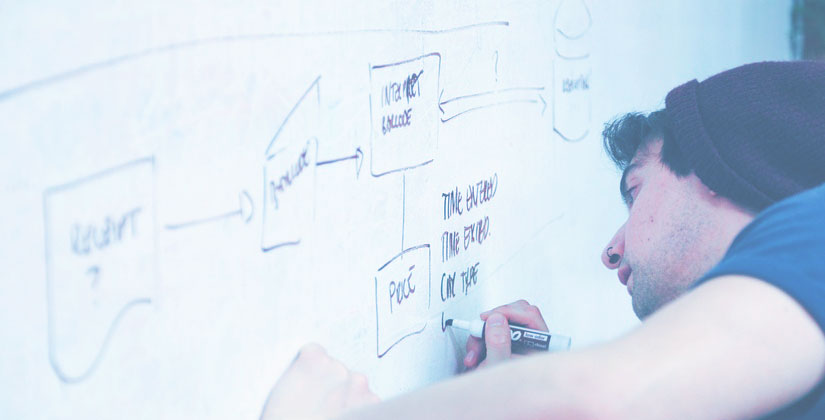 RECEIPT
?
BARCODE
INTERPRET
BARCODE
?
PRICE
TIME ENTERED
TIME EXITED
CAR TYPE